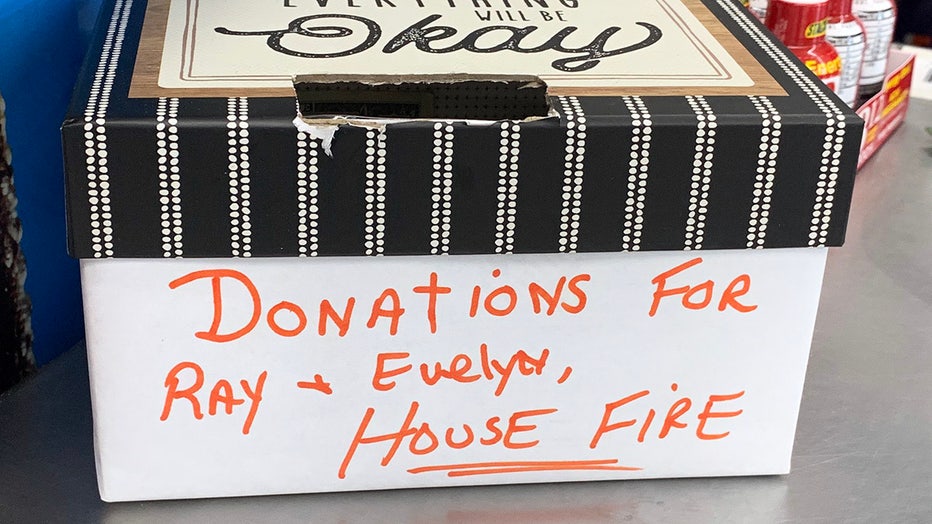 EVERYTHING
WILL BE
Okay
DONATIONS FOR
RAY + Evelyn,
HOUSE FIRE